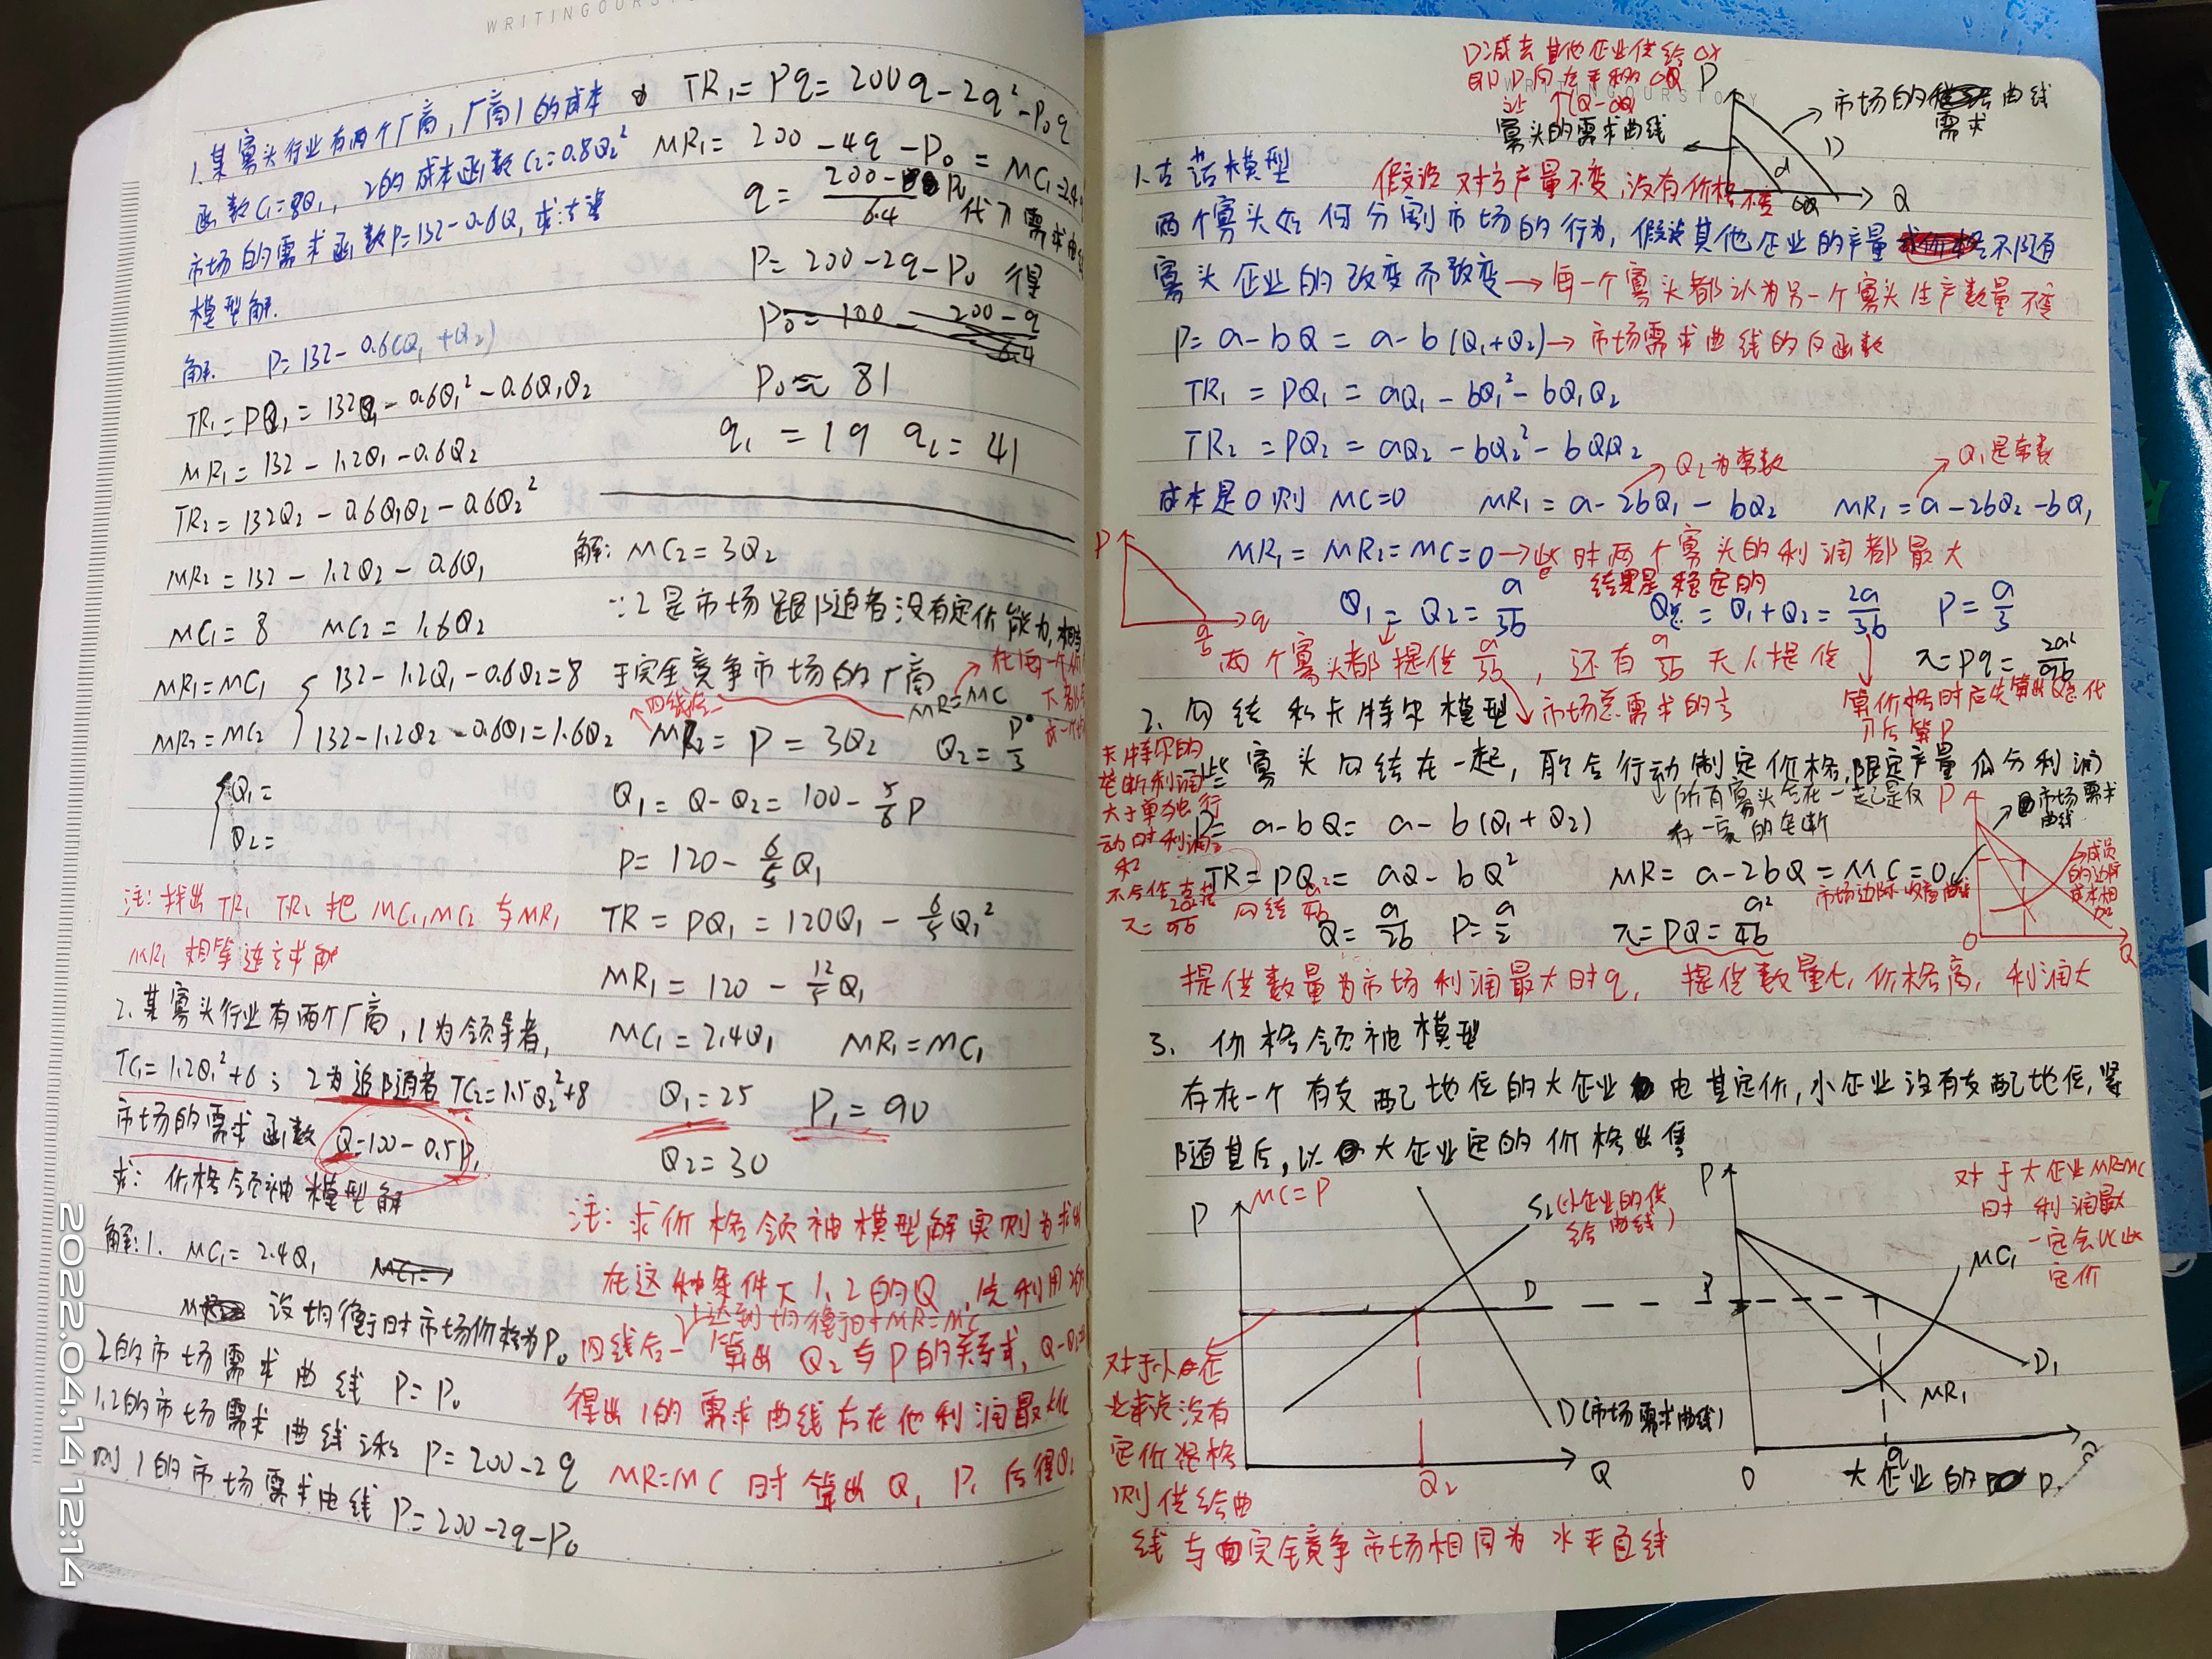 WRITINGOURS
1.某寡头行业有两个厂商,厂商1的成本
函数C₁=8Q₁,2的成本函数C₂=0.8Q₂²
市场的需求函数P=132-0.6Q,求:古诺
模型解.
解: P=132-0.6(Q₁+Q₂)
TR₁=PQ₁=132Q₁-0.6Q₁²-0.6Q₁Q₂
MR₁=132-1.2Q₁-0.6Q₂
TR₂=132Q₂-0.6Q₁Q₂-0.6Q₂²
MR₂=132-1.2Q₂-0.6Q₁
MC₁=8 MC₂=1.6Q₂
MR₁=MC₁ { 132-1.2Q₁-0.6Q₂=8
MR₂=MC₂ 132-1.2Q₂-0.6Q₁=1.6Q₂
{ Q₁=
Q₂=
注:找出TR₁ TR₂ 把MC₁,MC₂与MR₁
MR₂相等连立求解
2.某寡头行业有两个厂商,1为领导者,
TC₁=1.2Q₁²+6; 2为追随者 TC₂=1.5Q₂²+8
市场的需求函数Q=100-0.5P,
求:价格领袖模型解
解:1. MC₁=2.4Q₁
设均衡时市场价格为P₀
2的市场需求曲线 P=P₀
1.2的市场需求曲线 P=200-2q
则1的市场需求曲线 P=200-2q-P₀
TR₁=Pq=200q-2q²-P₀q
MR₁=200-4q-P₀=MC₁=2.4
q=(200-P₀)/6.4 代入需求曲线
P=200-2q-P₀ 得
P₀=100-(200-q)/6.4
P₀≈81
q₁=19 q₂=41
解:MC₂=3Q₂
∵2是市场跟随者没有定价能力,相当
于完全竞争市场的厂商
四线合一 MR=MC
MR₂=P=3Q₂ Q₂=P/3
Q₁=Q-Q₂=100-5/6P
P=120-6/5Q₁
TR=PQ₁=120Q₁-6/5Q₁²
MR₁=120-12/5Q₁
MC₁=2.4Q₁ MR₁=MC₁
Q₁=25 P₁=90
Q₂=30
注:求价格领袖模型解实则为求出
在这种条件下1,2的Q,先利用2的
达到均衡时MR=MC
四线合一算出Q₂与P的关系式,Q-Q₂=
得出1的需求曲线后在他利润最大化
MR=MC时算出Q₁ P,后得Q₂
D减去其他企业供给OX
寡头的需求曲线
市场的需求曲线
P
D
d
Q
1.古诺模型 假设对方产量不变,没有价格不变
两个寡头如何分割市场的行为,假设其他企业的产量不随
寡头企业的改变而改变→每一个寡头都认为另一个寡头生产数量不变
P=a-bQ=a-b(Q₁+Q₂)→市场需求曲线的反函数
TR₁=PQ₁=aQ₁-bQ₁²-bQ₁Q₂
TR₂=PQ₂=aQ₂-bQ₂²-bQ₁Q₂
Q₂为常数 Q₁是常数
成本是0则 MC=0 MR₁=a-2bQ₁-bQ₂ MR₁=a-2bQ₂-bQ₁
MR₁=MR₂=MC=0→此时两个寡头的利润都最大
结果是稳定的
Q₁=Q₂=a/3b Q总=Q₁+Q₂=2a/3b P=a/3
P
a/b
q
两个寡头都提供a/3b,还有a/3b无人提供 π=pq=2a²/9b
市场总需求的1/3
算价格时应先算出Q总代
入后算P
2.勾结和卡特尔模型
一些寡头勾结在一起,联合行动制定价格,限定产量瓜分利润
所有寡头合在一起是仅
有一家的垄断
卡特尔的
垄断利润
大于单独行
动时利润之
和
P=a-bQ=a-b(Q₁+Q₂)
TR=PQ=aQ-bQ² MR=a-2bQ=MC=0
市场边际收益曲线
勾结a²/4b
π=2a²/9b
Q=a/2b P=a/2 π=PQ=a²/4b
P
市场需求
曲线
成员
的边际
成本相
加
O
Q
提供数量为市场利润最大时q,提供数量少,价格高,利润大
3.价格领袖模型
存在一个有支配地位的大企业由其定价,小企业没有支配地位,紧
随其后,以大企业定的价格出售
P MC=P
S₂(小企业的供
给曲线)
D
D(市场需求曲线)
Q₂
Q
对于小企
业来说没有
定价资格
则供给曲
线与完全竞争市场相同为水平直线
P
对于大企业MR=MC
时利润最大
一定会以此
定价
MC₁
D₁
MR₁
O
大企业的
2022.04.14 12:14